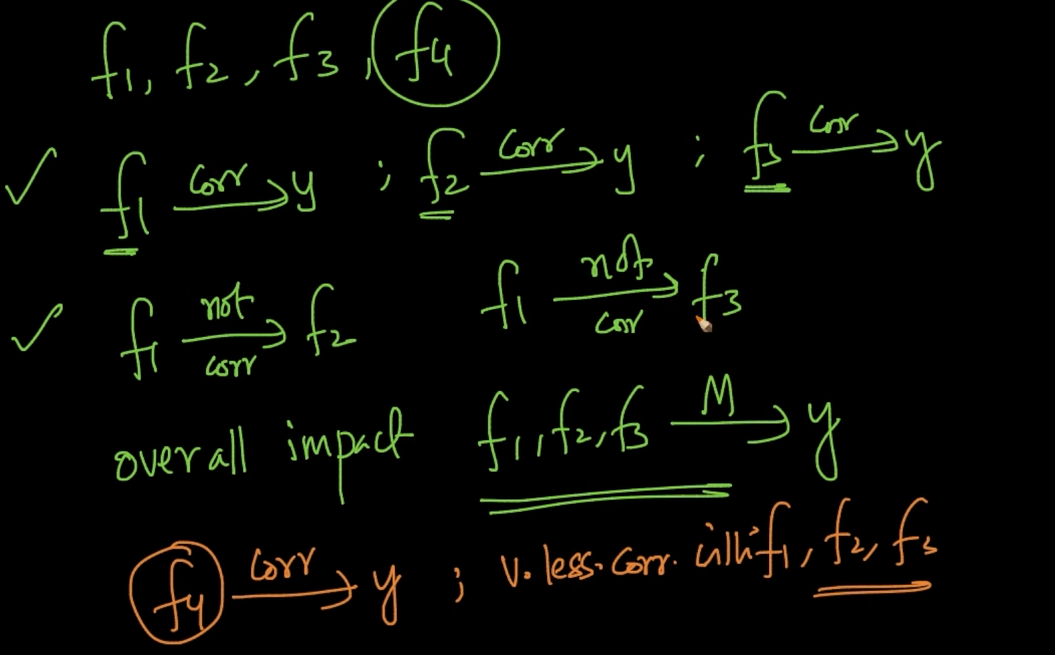 f1, f2, f3, f4
✓ f1 corr→ y ; f2 corr→ y ; f3 corr→ y
✓ f1 not corr→ f2 f1 not corr→ f3
overall impact f1, f2, f3 M→ y
f4 corr→ y ; V. less. corr. with f1, f2, f3